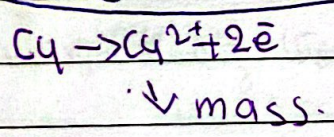 Cu → Cu²⁺ + 2ē
↓ mass.